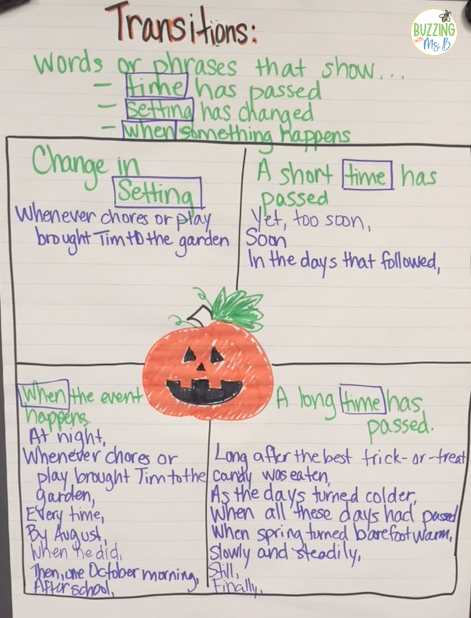 Transitions:
BUZZING
with
Ms. B
Words or phrases that show...
- time has passed
- Setting has changed
- when something happens
Change in
Setting
Whenever chores or play
brought Tim to the garden
A short time has
passed
Yet, too soon,
Soon
In the days that followed,
When the event
happens.
At night,
Whenever chores or
play brought Tim to the
garden,
Every time,
By August,
When he did,
Then, one October morning,
After school,
A long time has
passed.
Long after the best trick-or-treat
candy was eaten,
As the days turned colder,
When all these days had passed
When spring turned barefoot warm,
Slowly and steadily,
Still,
Finally,